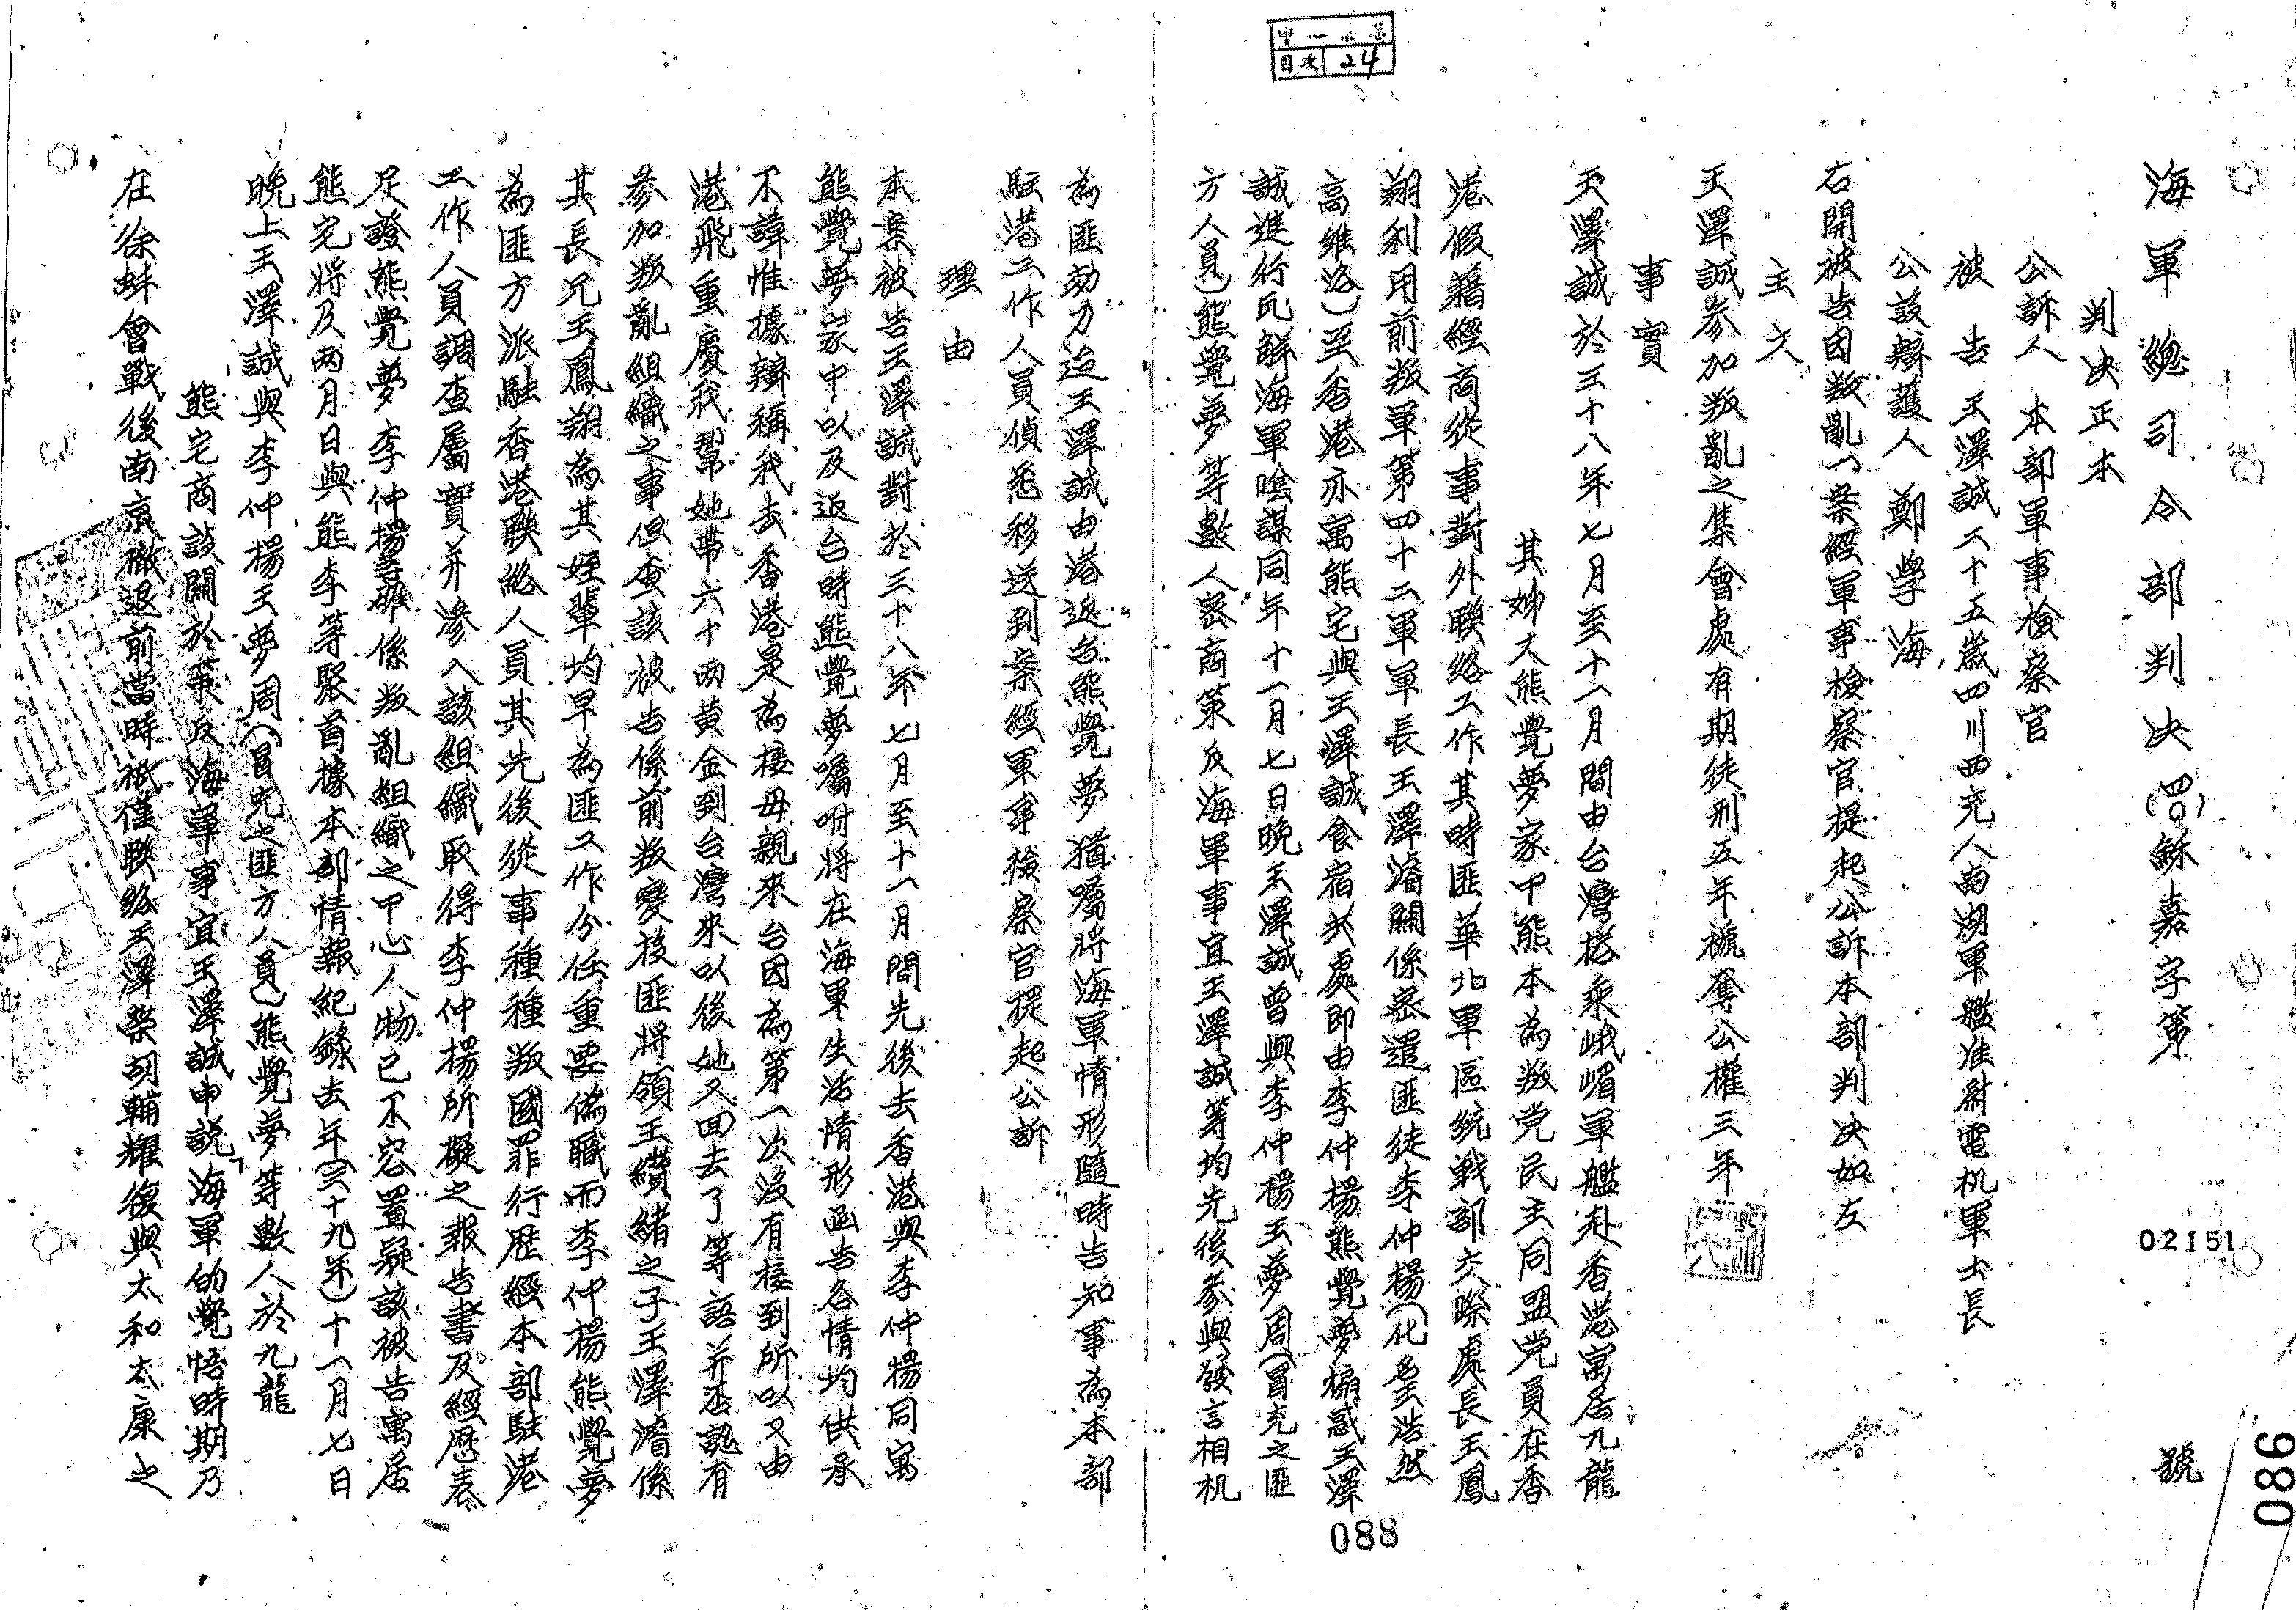 海軍總司令部判決 (四〇)穌嘉字第 02151 號
判決正本
公訴人 本部軍事檢察官
被告 王澤誠 二十五歲四川西充人前湖軍艦准尉電机軍士長
公設辯護人 鄭學海
右開被告因叛亂一案經軍事檢察官提起公訴本部判決如左
主文
王澤誠參加叛亂之集會處有期徒刑五年褫奪公權三年
事實
王澤誠於三十八年七月至十一月間由台灣搭乘峨嵋軍艦赴香港寓居九龍
其姊夫熊覺夢家中熊本為叛党民主同盟党員在香
港假籍經商從事對外聯絡工作其時匪華北軍區統戰部交際處長王鳳
翔利用前叛軍第四十二軍軍長王澤濬關係密遣匪徒李仲楊(化名王浩然
高維洛)至香港亦寓熊宅與王澤誠食宿共處即由李仲楊熊覺夢煽惑王澤
誠進行瓦解海軍陰謀同年十一月七日晚王澤誠曾與李仲楊王夢周(冒充之匪
方人員)熊覺夢等數人密商策反海軍事宜王澤誠等均先後參與發言相机
為匪効力迨王澤誠由港返台熊覺夢猶囑將海軍情形隨時告知事為本部
駐港工作人員偵悉移送到案經軍事檢察官提起公訴
理由
本案被告王澤誠對於三十八年七月至十一月間先後去香港與李仲楊同寓
熊覺夢家中以及返台時熊覺夢囑咐將在海軍生活情形函告各情均供承
不諱惟據辯稱我去香港是為接母親來台因為第一次沒有接到所以又由
港飛重慶我幫她帶六十兩黃金到台灣來以後她又回去了等語并否認有
參加叛亂組織之事但查該被告係前叛變投匪將領王纘緒之子王澤濬係
其長兄王鳳翔為其姪輩均早為匪工作分任重要偽職而李仲楊熊覺夢
為匪方派駐香港聯絡人員其先後從事種種叛國罪行歷經本部駐港
工作人員調查屬實并滲入該組織取得李仲楊所擬之報告書及經歷表
足證熊覺夢李仲楊等確係叛亂組織之中心人物已不容置疑該被告寓居
熊宅將及兩月日與熊李等聚首據本部情報紀錄去年(三十九年)十一月七日
晚上王澤誠與李仲楊王夢周(冒充之匪方人員)熊覺夢等數人於九龍
熊宅商談關於策反海軍事宜王澤誠申說「海軍的覺悟時期乃
在徐蚌會戰後南京撤退前當時祇僅聯絡王澤榮胡輔耀復興太和太康之
088
086
目次 24